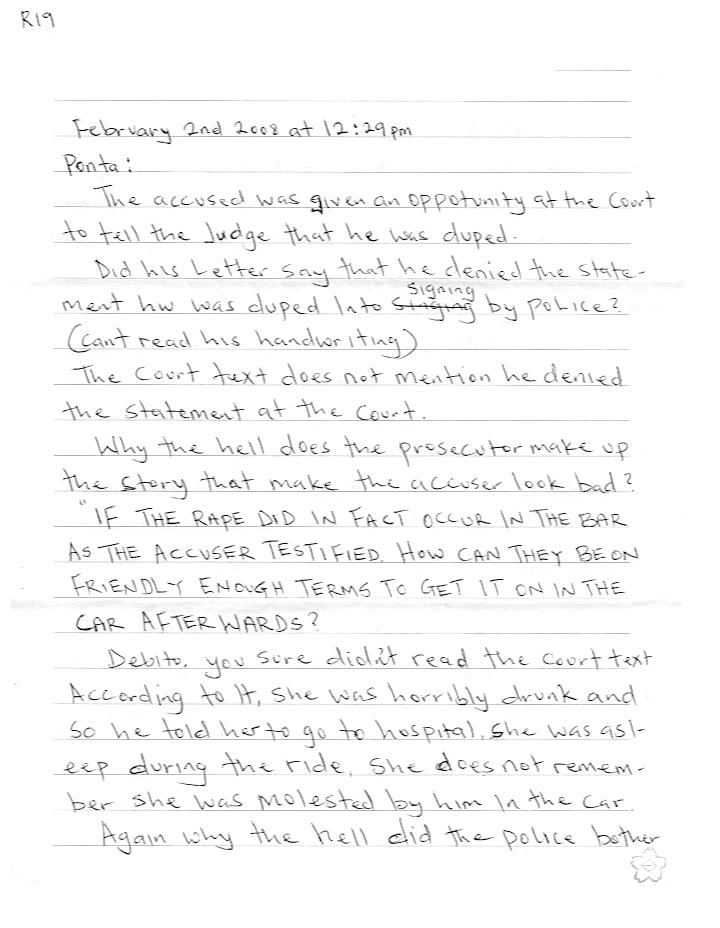 R19
February 2nd 2008 at 12:29pm
Ponta:
The accused was given an oppotunity at the Court
to tell the Judge that he was duped.
Did his Letter say that he denied the state-
Signing
ment hw was duped Into Singing by police?
(Cant read his handwriting)
The Court text does not mention he denied
the statement at the Court.
Why the hell does the prosecutor make up
the story that make the accuser look bad?
"IF THE RAPE DID IN FACT OCCUR IN THE BAR
AS THE ACCUSER TESTIFIED. HOW CAN THEY BE ON
FRIENDLY ENOUGH TERMS TO GET IT ON IN THE
CAR AFTERWARDS?
Debito, you sure didn't read the court text
According to It, she was horribly drunk and
so he told her to go to hospital. She was asl-
eep during the ride. She does not remem-
ber she was molested by him In the car.
Again why the hell did the police bother